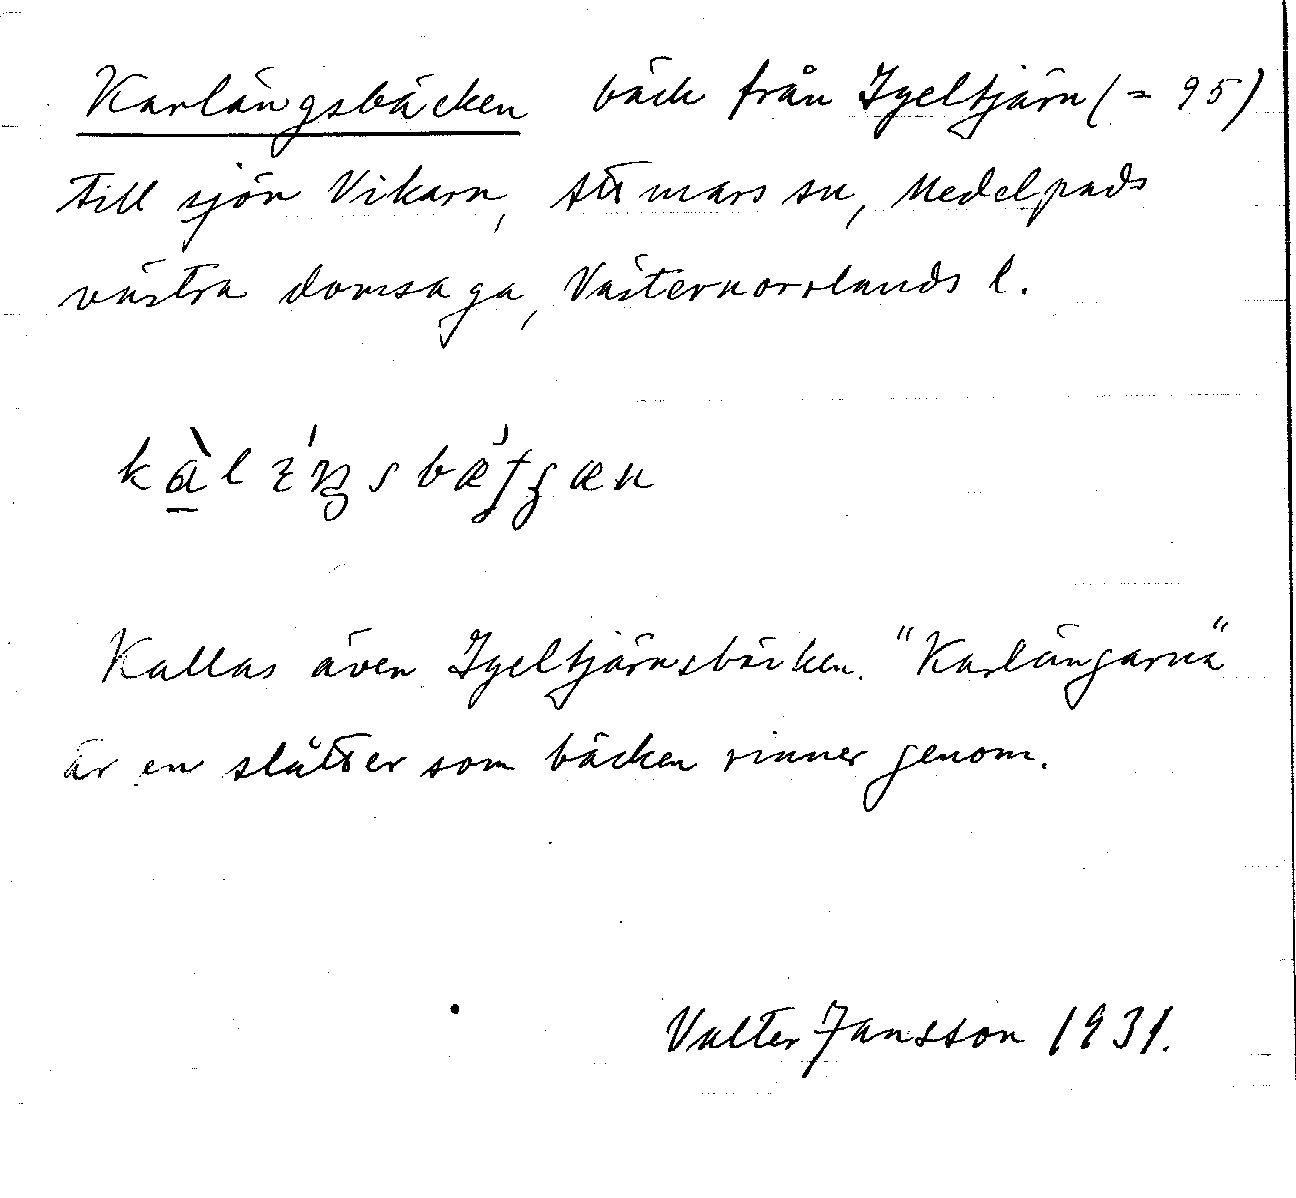 Karlängsbäcken bäck från Igeltjärn (= 95)
till sjön Vikarn, Attmars sn, Medelpads
västra domsaga, Västernorrlands l.
Kallas även Igeltjärnsbäcken. "Karlängarna"
är en slåtter som bäcken rinner genom.
Valter Jansson 1931.